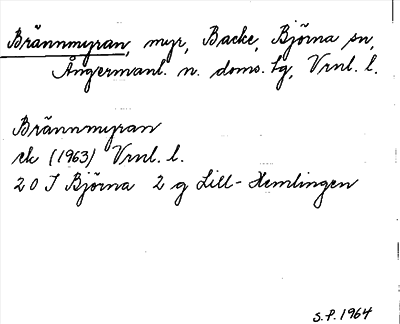 Brännmyran, myr, Backe, Björna sn,
Ångermanl. n. doms. tg, Vrnl. l.
Brännmyran
ek (1963) Vrnl. l.
20 I Björna 2 g Lill-Hemlingen
S.F. 1964